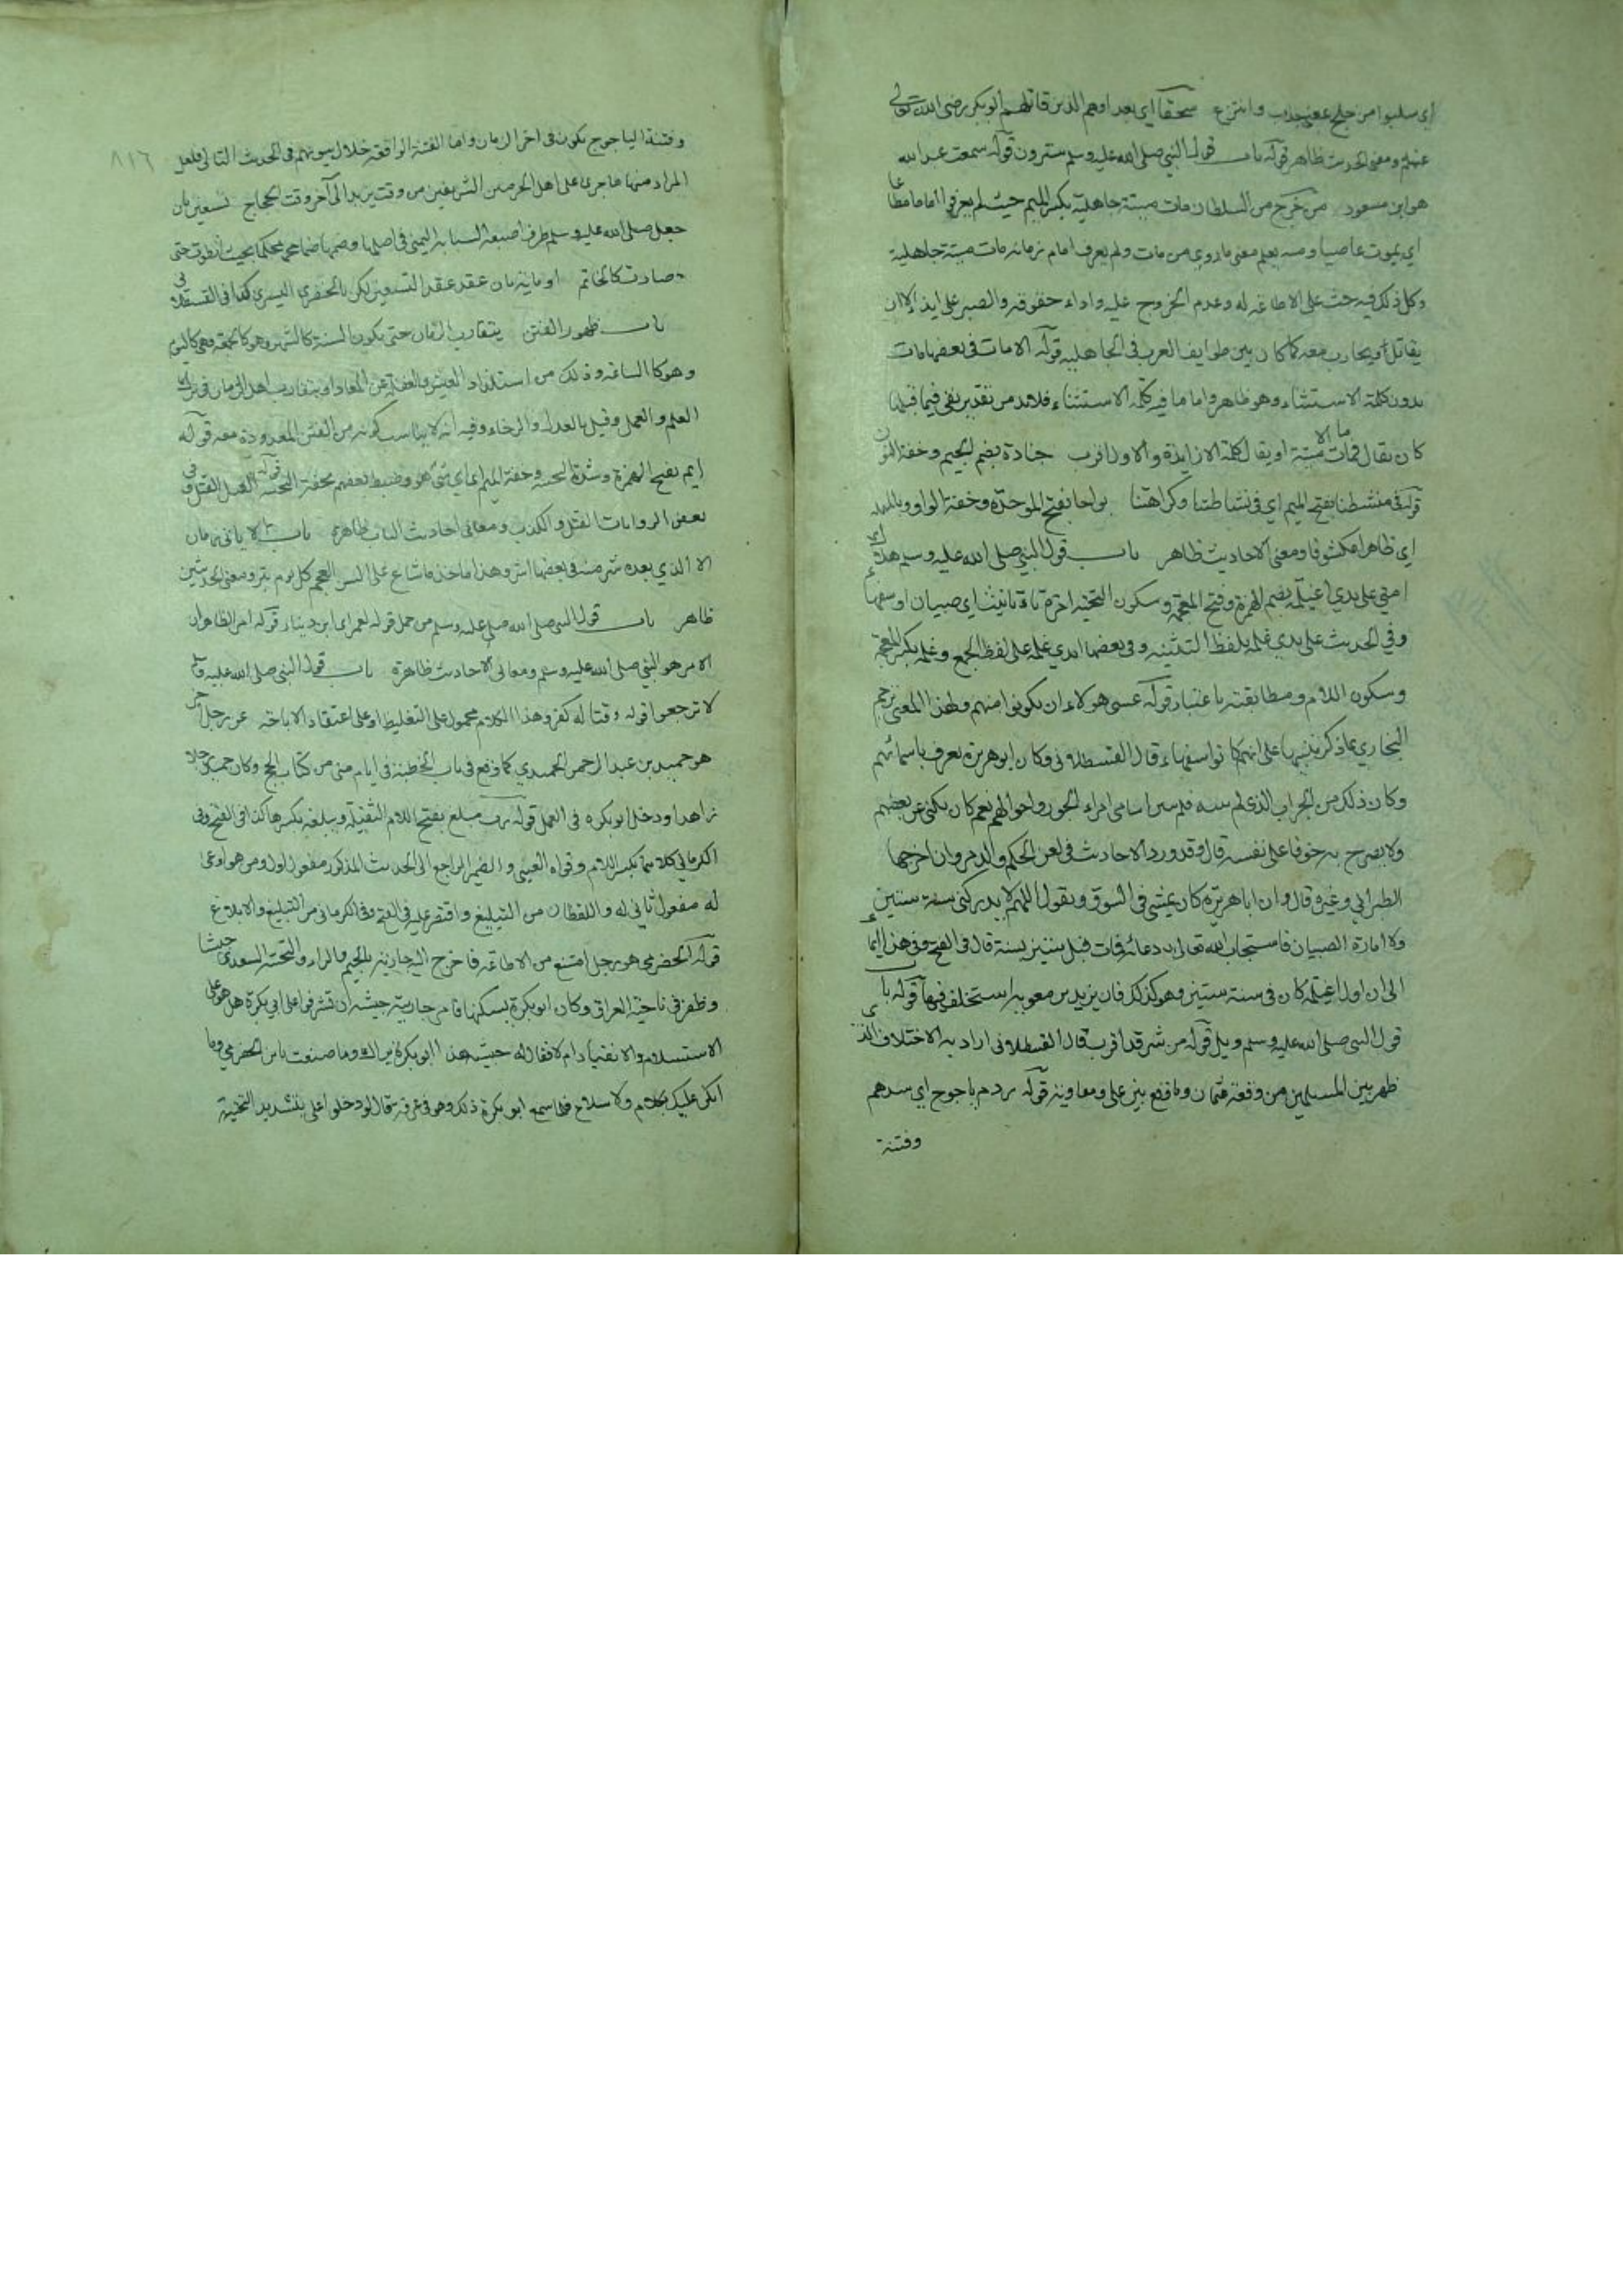 اي سلبوا من جلج عففي جذب وانتزع سحقا اي بعدا وهم الذين قاتلهم ابو بكر رضي الله تعالى
عنهم ومعنى الحديث ظاهر قوله باب قول النبي صلى الله عليه وسلم سترون قوله سمعت عبد الله
هو ابن مسعود من خرج من السلطان مات ميتة جاهلية بكسر الميم حيث لم يعرفوا اماما مطاعا
اي يموت عاصيا ومنه يعلم معنى ما روي من مات ولم يعرف امام زمانه مات ميتة جاهلية
وكل ذلك فيه حث على الاطاعة له وعدم الخروج عليه واداء حقوقه والصبر على ايذائه الا ان
يقاتل او يحارب معه كما كان بين طوايف العرب في الجاهلية قوله الا مات في بعضها مات
بدون كلمة الاستثناء وهو ظاهر واما ما فيه كلمة الاستثناء فلا بد من تقدير نفي فيما قبلها
كان يقال فمات ما الا ميتة او يقال كلمة الا زايدة والاول اقرب جنادة بضم الجيم وخفة النون
قوله في منشطنا بفتح الميم اي في نشاطنا وكراهتنا بواحا بفتح الموحدة وخفة الواو وبالمهملة
اي ظاهرا مكشوفا ومعنى الاحاديث ظاهر باب قول النبي صلى الله عليه وسلم هلاك
امتي على يدي اغيلمة بضم الهمزة وفتح المعجمة وسكون التحتية اخره تاء تانيث اي صبيان او سفهاء
وفي الحديث على يدي غلمة بلفظ التثنية وفي بعضها ايدي غلمة على لفظ الجمع وغلمة بكسر المعجمة
وسكون اللام ومطابقته باعتبار قوله عسى هولاء ان يكونوا منهم ولهذا المعنى ترجم
البخاري بما ذكر تنبيها على انهم كانوا سفهاء قال القسطلاني وكان ابو هريرة يعرف باسمائهم
وكان ذلك من الجراب الذي لم يبثه فلم يبين اسامي امراء الجور واحوالهم نعم كان يكنى عن بعضهم
ولا يصرح به خوفا على نفسه قال وقد ورد الاحاديث في لعن الحكم والد مروان اخرجها
الطبراني وغيره قال وان ابا هريرة كان يمشي في السوق ويقول اللهم لا يدركني سنة ستين
ولا امارة الصبيان فاستجاب الله تعالى دعائه فمات قبل ستين بسنة قال في الفتح وفي هذا ايماء
الى ان اول اغيلمة كان في سنة ستين وهو كذلك فان يزيد بن معوية استخلف فيها قوله باب
قول النبي صلى الله عليه وسلم ويل قوله من شر قد اقرب قال القسطلاني اراد به الاختلاف الذي
ظهر بين المسلمين من وقعة عثمان وما وقع بين علي ومعاوية قوله ردم ياجوج اي سدهم
وفتنة
٨١٦
وفتنة الياجوج يكون في اخر الزمان واما الفتنة الواقعة خلال بيوتهم في الحديث التالي فلعل
المراد منها ما جرى على اهل الحرمين الشريفين من وقت يزيد الى آخر وقت الحجاج تسعين بان
جعل صلى الله عليه وسلم طرف اصبعه السبابة اليمنى في اصلها وضمها ضما محكما بحيث انطوت حتى
صارت كالخاتم او مائة بان عقد عقد التسعين لكن بالخنصري اليسرى كذا في القسطلاني
باب ظهور الفتن يتقارب الزمان حتى يكون السنة كالشهر وهو كالجمعة وهي كاليوم
وهو كالساعة وذلك من استلذاذ العيش والغفلة عن المعاد او يتقارب اهل الزمان في ترك
العلم والعمل وقيل بالعدل والرخاء وفيه انه لا يناسب كونه من الفتن المعدودة معه قوله
ايم بفتح الهمزة وشدة التحتية وخفة الميم ايما اي شئ هو وضبط بعضهم بخفة التحتية قوله القتل القتل وفي
بعض الروايات القتل والكذب ومعاني احاديث الباب ظاهرة باب لا ياتي زمان
الا الذي بعده شر منه في بعضها اشر وهذا ماخذ ما شاع على السن العجم كل يوم بتر ومعنى الحديثين
ظاهر باب قول النبي صلى الله عليه وسلم من حمل قوله لعمر اي ابن دينار قوله امر الظاهر ان
الامر هو النبي صلى الله عليه وسلم ومعاني الاحاديث ظاهرة باب قول النبي صلى الله عليه وسلم
لا ترجعوا قوله وقتاله كفر وهذا الكلام محمول على التغليظ او على اعتقاد الاباحة عن رجل آخر
هو حميد بن عبد الرحمن الحميدي كما وقع في باب الخطبة في ايام منى من كتاب الحج وكان حميد رجلا
زاهدا ودخل ابو بكره في العمل قوله رب مبلغ بفتح اللام الثقيلة ويبلغه بكسرها كذا في الفتح وفي
الكرماني كلاهما بكسر اللام وقواه العيني والضمير الراجع الى الحديث المذكور مفعول اول ومن هو اوعى
له مفعول ثاني له واللفظان من التبليغ واقتصر عليه في الفتح وفي الكرماني من التبليغ والابلاغ
قوله الحضرمي هو رجل امتنع من الاطاعة فاخرج اليه جارية بالجيم والراء والتحتية السعدي جيشا
وظفر في ناحية العراق وكان ابو بكرة يسكنها فامر جارية جيشه ان تشرفوا على ابي بكرة هل هو على
الاستسلام والانقياد ام لا فقال له جيشه هذا ابو بكرة يراك وما صنعت بابن الحضرمي وما
انكر عليك بكلام ولا سلاح فلما سمع ابو بكرة ذلك وهو في غرفة قال لو دخلوا علي بتشديد التحتية